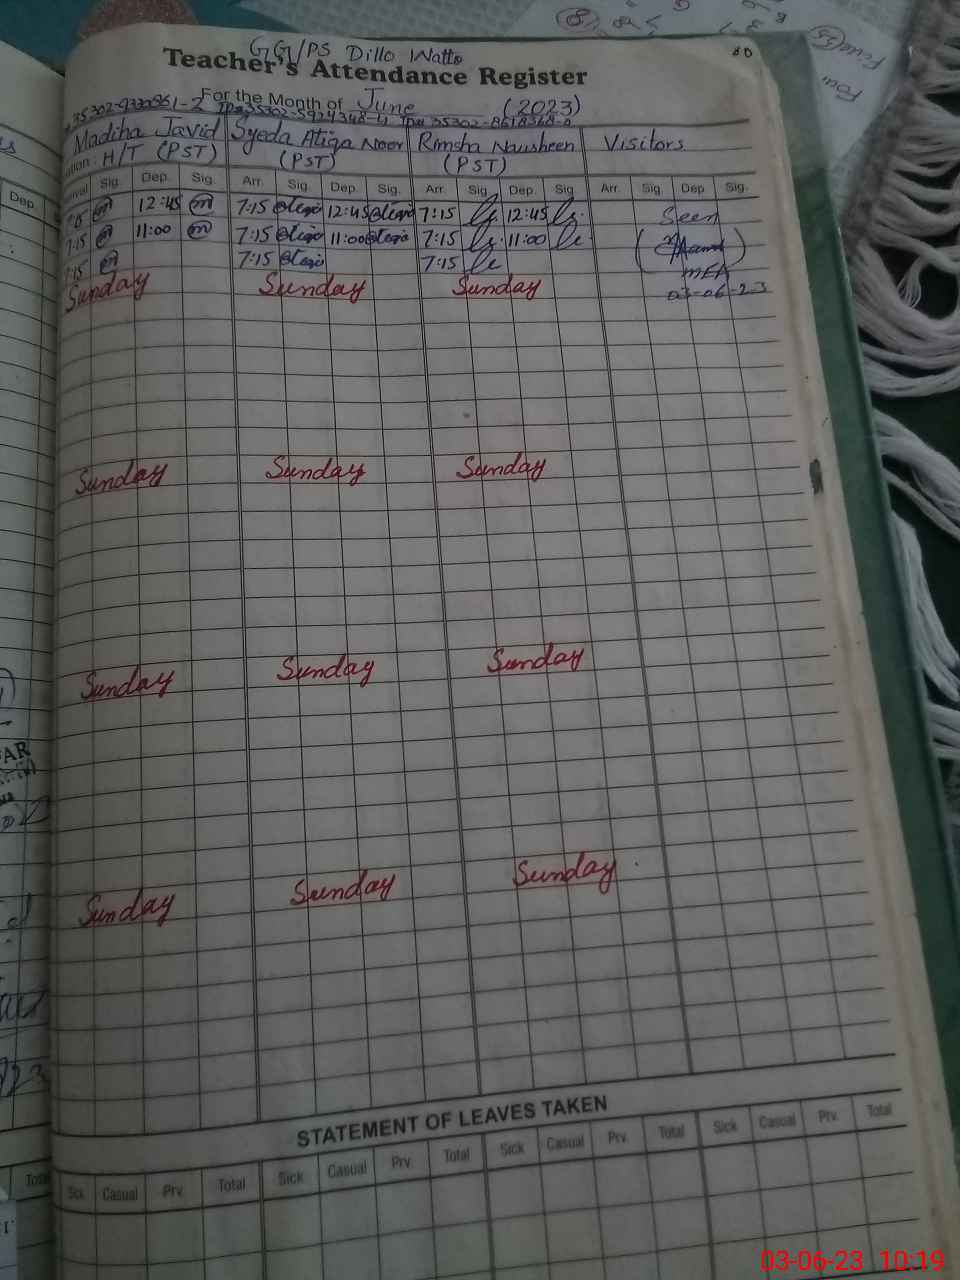 GG/PS Dillo Watto
Teacher's Attendance Register
80
For the Month of June (2023)
Madiha Javid Syeda Atiqa Noor Rimsha Nausheen Visitors
H/T (PST) (PST) (PST)
Sig. Dep. Sig. Arr. Sig. Dep. Sig. Arr. Sig. Dep. Sig. Arr. Sig. Dep Sig.
7:15 12:45 7:15 12:45 7:15 12:45 Seen
7:15 11:00 7:15 11:00 7:15 11:00
7:15 7:15 7:15 MEA
Sunday Sunday Sunday 03-06-23
Sunday Sunday Sunday
Sunday Sunday Sunday
Sunday Sunday Sunday
STATEMENT OF LEAVES TAKEN
Sick Casual Prv. Total Sick Casual Prv. Total Sick Casual Prv. Total Sick Casual Prv. Total
Dep.
AR
Total
Four
03-06-23 10:19